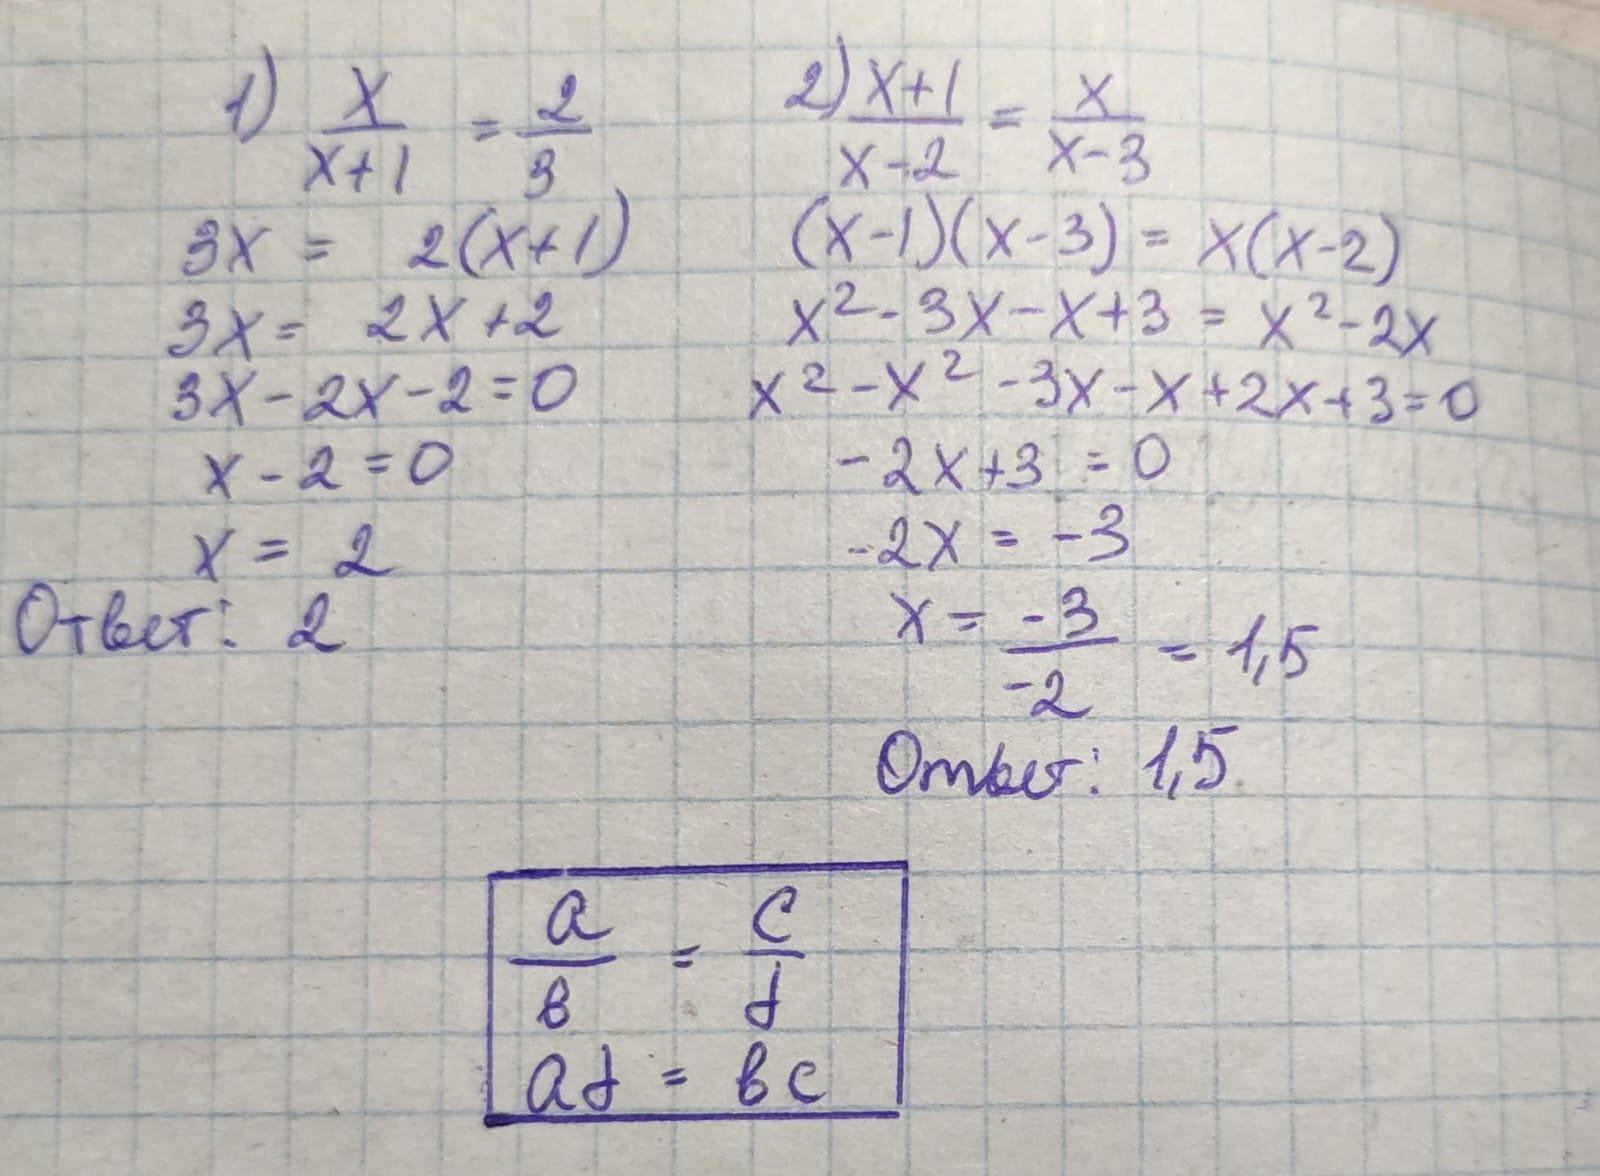 1) x/(x+1) = 2/3
3x = 2(x+1)
3x = 2x+2
3x-2x-2=0
x-2=0
x = 2
Ответ: 2
2) (x+1)/(x-2) = x/(x-3)
(x-1)(x-3) = x(x-2)
x²-3x-x+3 = x²-2x
x²-x²-3x-x+2x+3=0
-2x+3 =0
-2x = -3
x = -3/-2 = 1,5
Ответ: 1,5
a/b = c/d
ad = bc